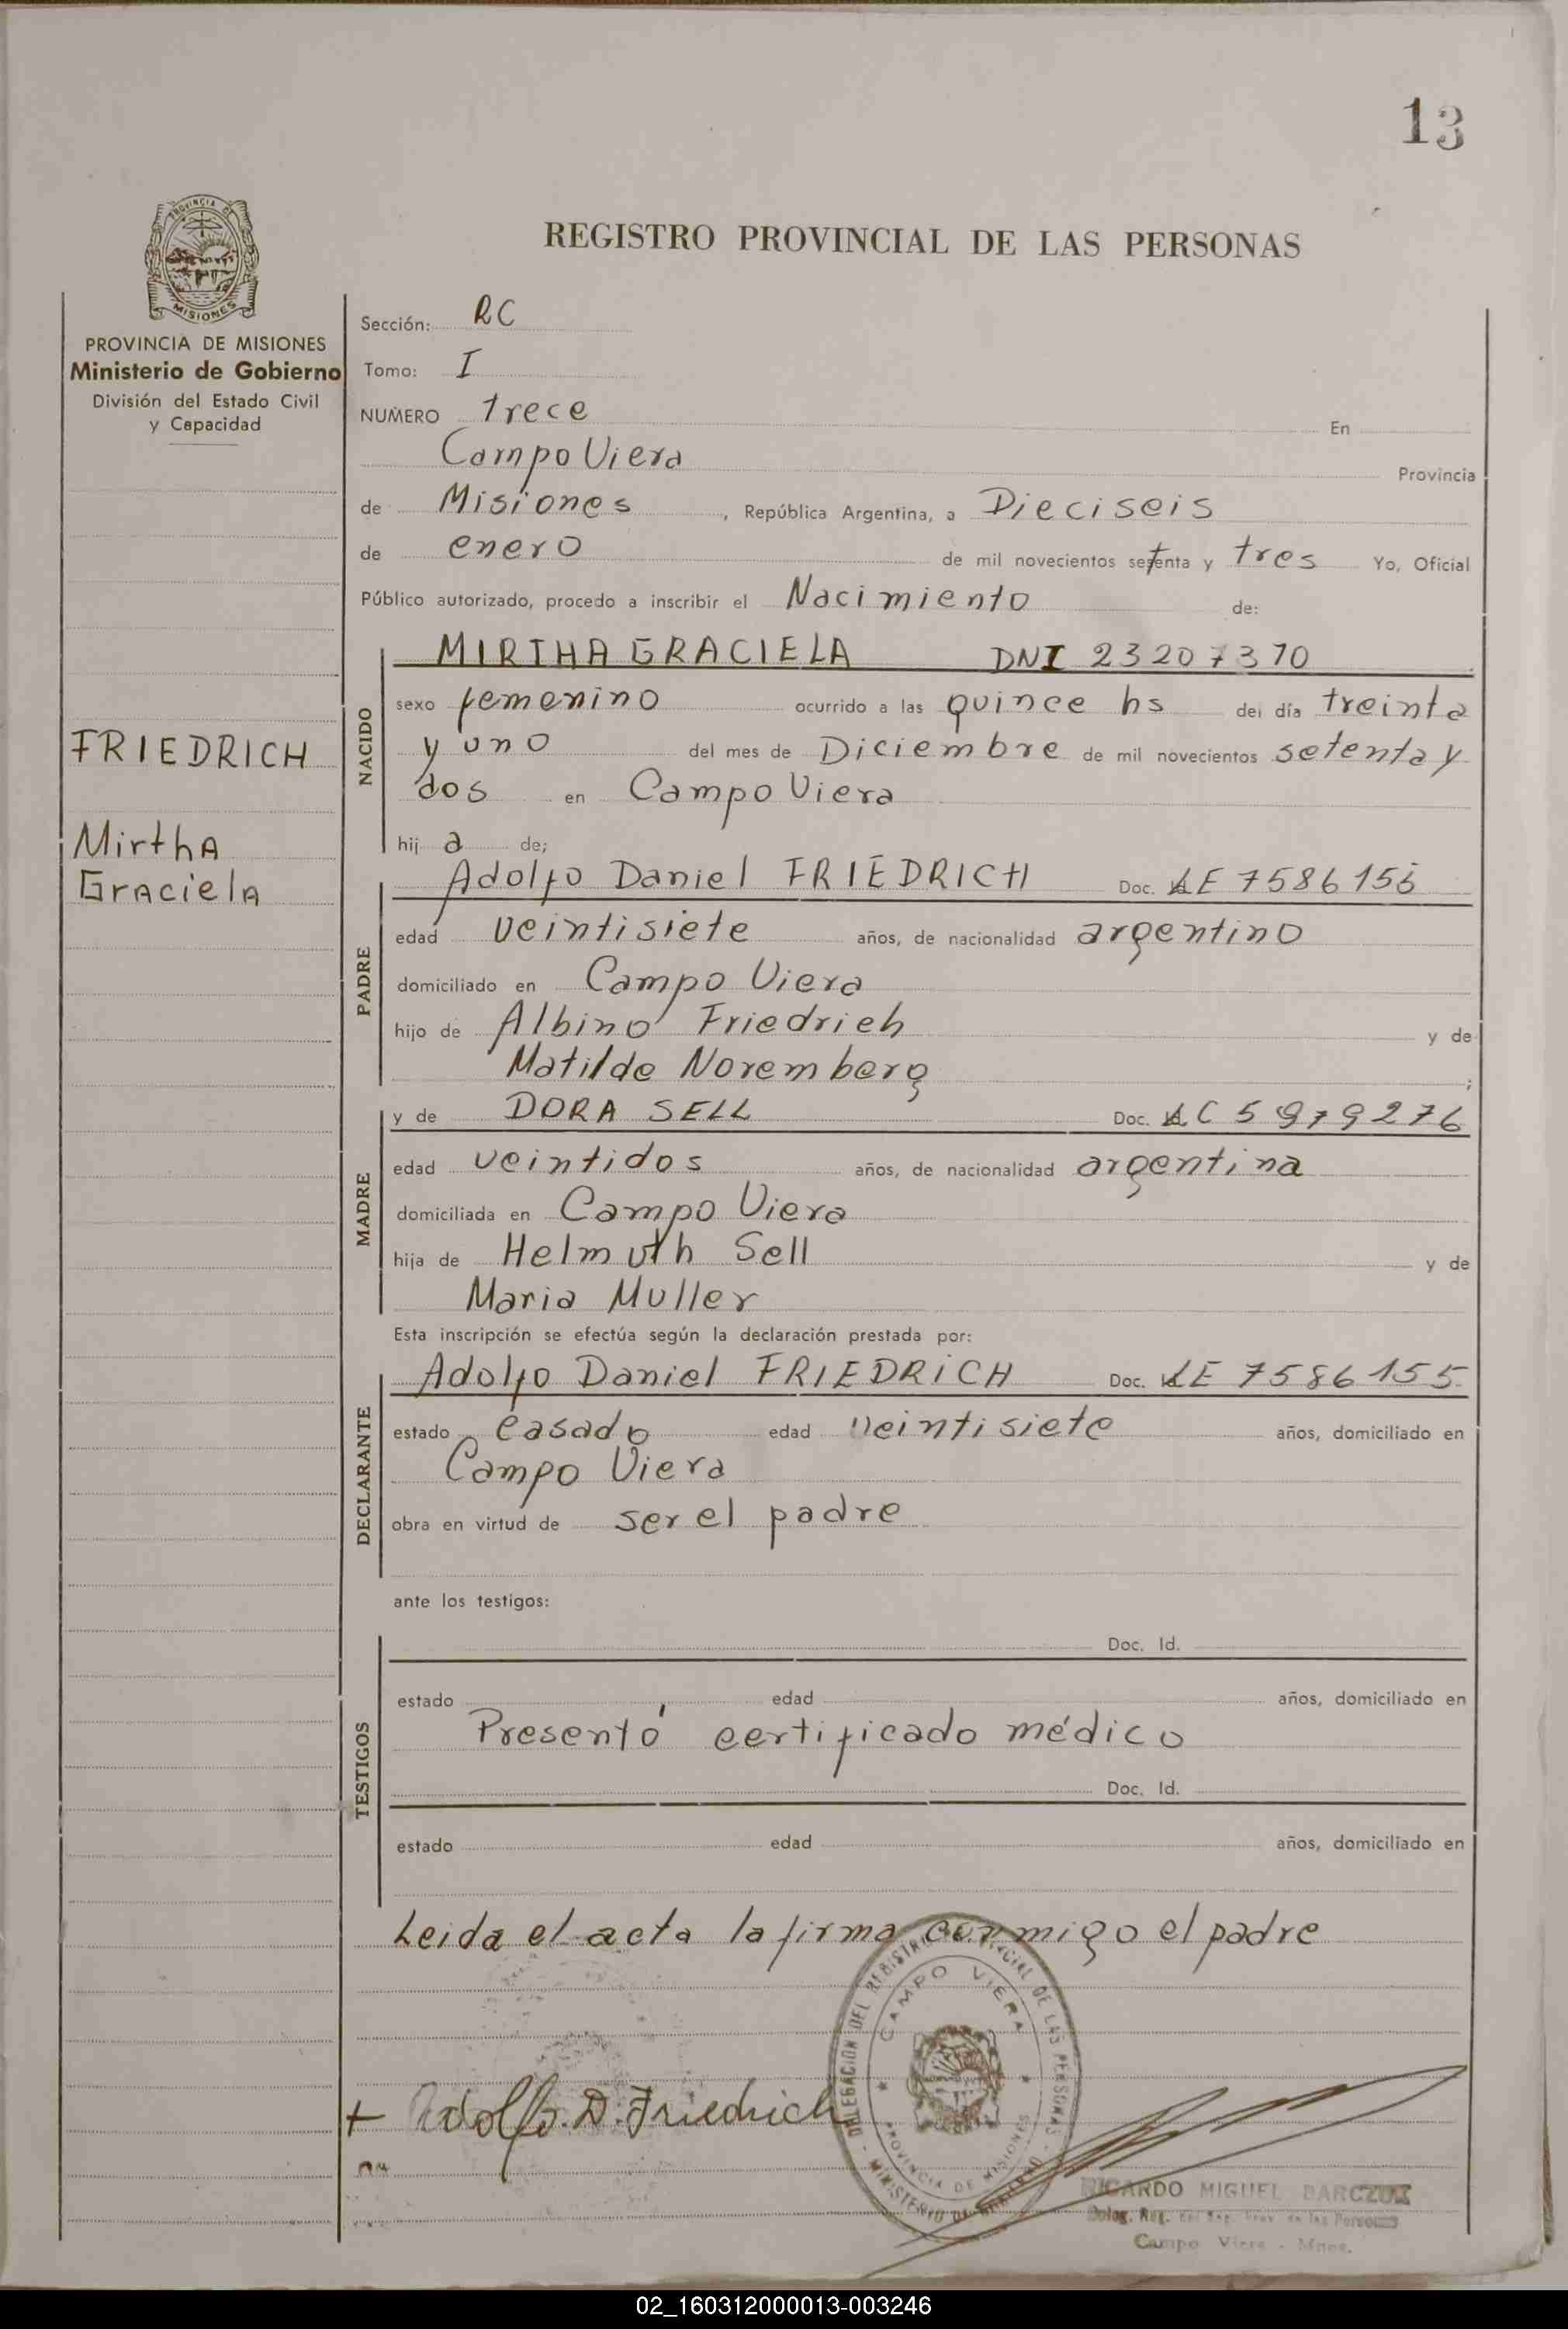 13
PROVINCIA DE
MISIONES
REGISTRO PROVINCIAL DE LAS PERSONAS
PROVINCIA DE MISIONES
Ministerio de Gobierno
División del Estado Civil
y Capacidad
FRIEDRICH
MirthA
GrAcielA
Sección: RC
Tomo: I
NUMERO trece En
Campo Viera Provincia
de Misiones, República Argentina, a Dieciseis
de enero de mil novecientos setenta y tres Yo, Oficial
Público autorizado, procedo a inscribir el Nacimiento de:
NACIDO
MIRTHA GRACIELA DNI 23207370
sexo femenino ocurrido a las quince hs del día treinta
y uno del mes de Diciembre de mil novecientos setenta y
dos en Campo Viera
hij a de;
PADRE
Adolfo Daniel FRIEDRICH Doc. LE 7586155
edad veintisiete años, de nacionalidad argentino
domiciliado en Campo Viera
hijo de Albino Friedrich y de
Matilde Noremberg;
MADRE
y de DORA SELL Doc. LC 5979276
edad veintidos años, de nacionalidad argentina
domiciliada en Campo Viera
hija de Helmuth Sell y de
Maria Muller
Esta inscripción se efectúa según la declaración prestada por:
DECLARANTE
Adolfo Daniel FRIEDRICH Doc. LE 7586155
estado casado edad veintisiete años, domiciliado en
Campo Viera
obra en virtud de ser el padre
ante los testigos:
TESTIGOS
Doc. Id.
estado edad años, domiciliado en
Presentó certificado médico
Doc. Id.
estado edad años, domiciliado en
Leida el acta la firma conmigo el padre
DELEGACION DEL REGISTRO PROVINCIAL DE LAS PERSONAS
CAMPO VIERA
PROVINCIA DE MISIONES
MINISTERIO DE
+ Adolfo. D. Friedrich
RICARDO MIGUEL BARCZUK
Deleg. Reg. de las
Campo Viera - Mnes.
02_160312000013-003246